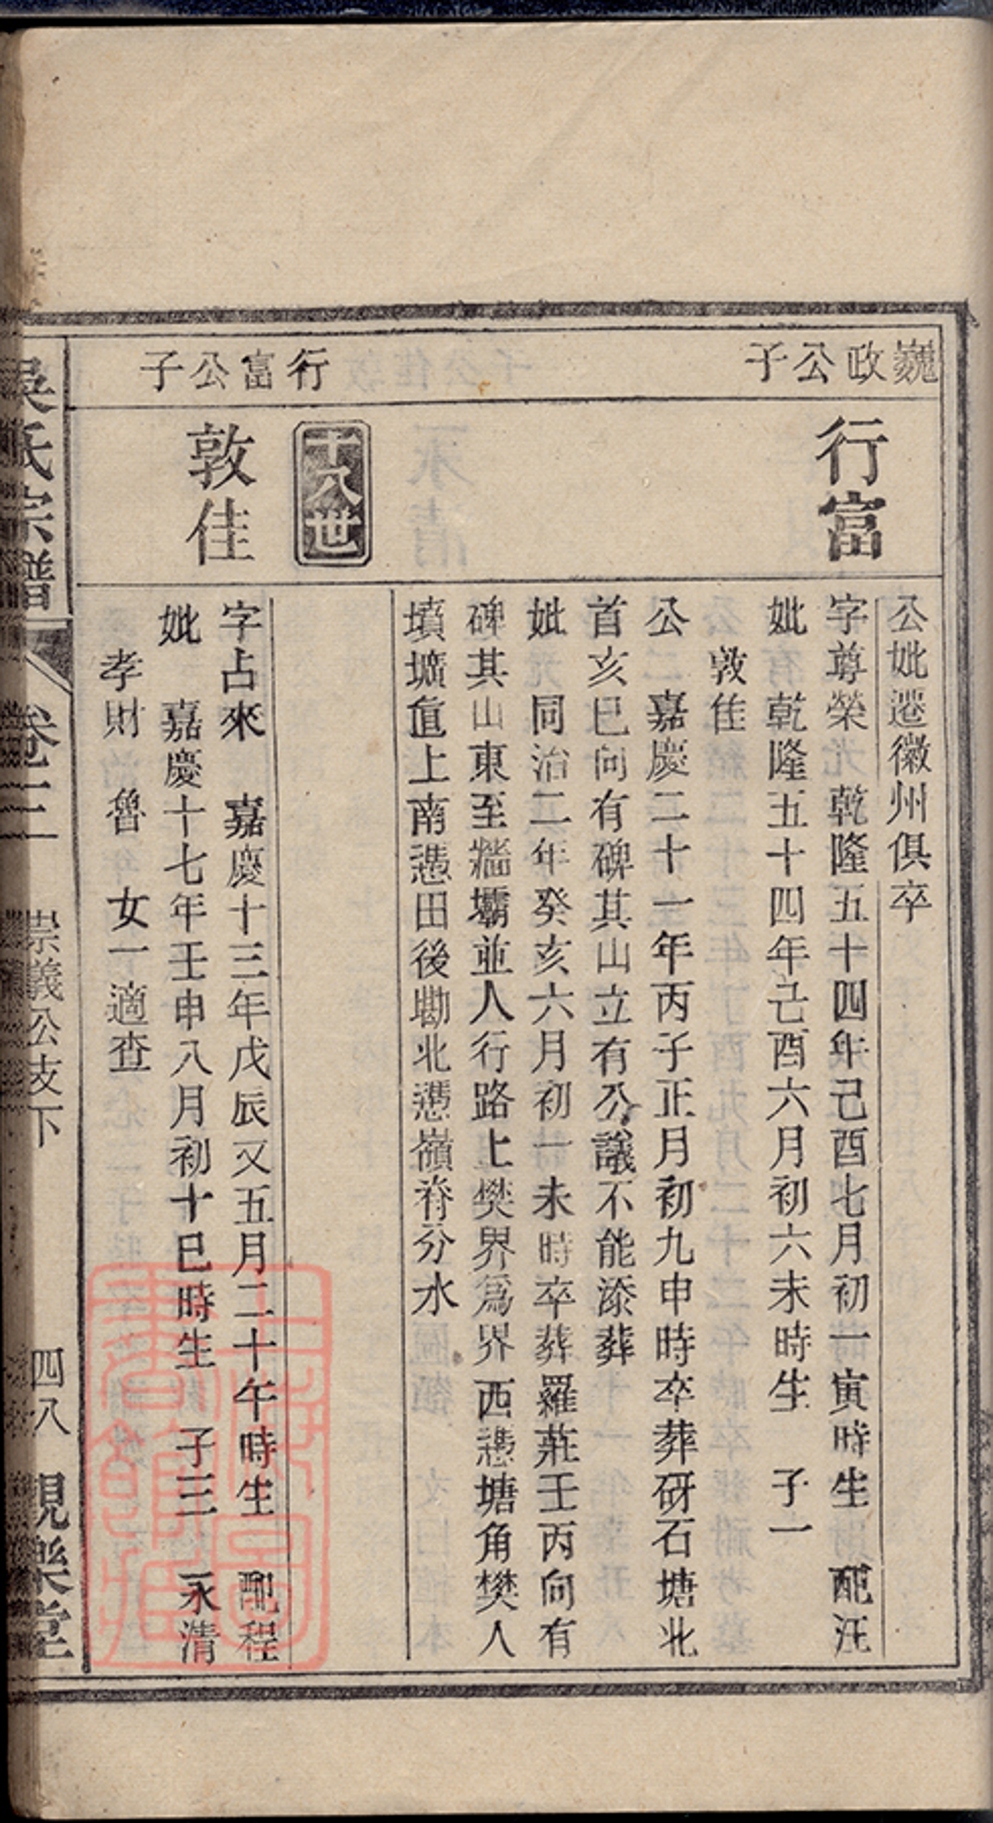 巍政公子
行富
公妣遷徽州俱卒
字尊榮 乾隆五十四年己酉七月初一寅時生 配汪
妣 乾隆五十四年己酉六月初六未時生 子一
敦佳
公 嘉慶二十一年丙子正月初九申時卒葬硏石塘北
首亥巳向有碑其山立有公議不能添葬
妣 同治二年癸亥六月初一未時卒葬羅莊壬丙向有
碑其山東至牆壩並人行路上樊界為界西憑塘角樊人
墳壙直上南憑田後墈北憑嶺脊分水
行富公子
十八世
敦佳
字占來 嘉慶十三年戊辰又五月二十午時生 配程
妣 嘉慶十七年壬申八月初十巳時生 子三 永清
孝財 魯 女一適查
吳氏宗譜 卷三 崇義公支下 四八 親樂堂
上海圖書館藏